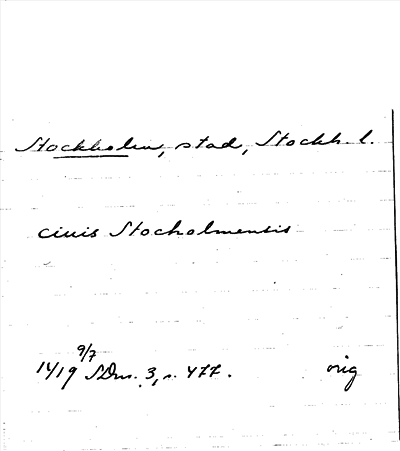 Stockholm, stad, Stockh. l.
ciuis Stocholmensis
1419 9/7 SDns. 3, s. 477. orig